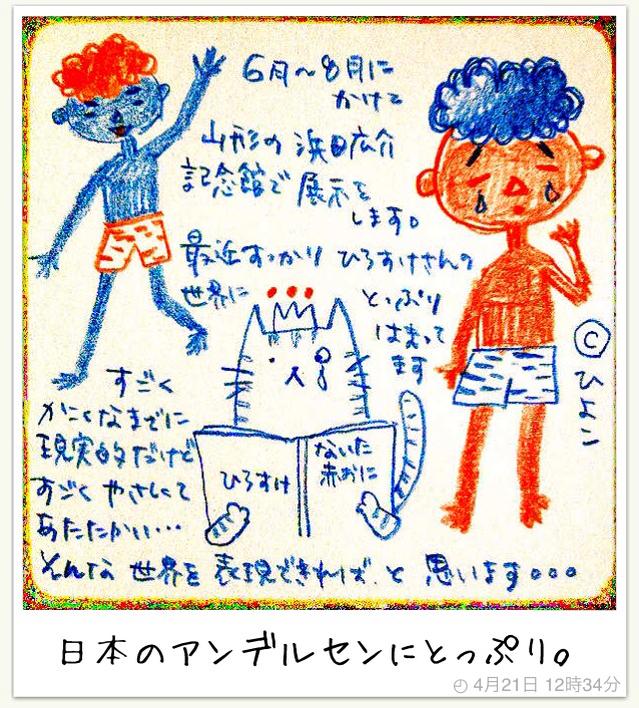 6月〜8月に
かけて
山形の 浜田広介
記念館で 展示を
します。
最近すっかり ひろすけさんの
世界に とっぷり
はまって
ます
すごく
かこくなまでに
現実的だけど
すごく やさしくて
あたたかい…
そんな 世界を 表現できれば、と 思います。。。
ひろすけ
ないた
赤おに
©ひよこ
日本のアンデルセンにとっぷり。
4月21日 12時34分